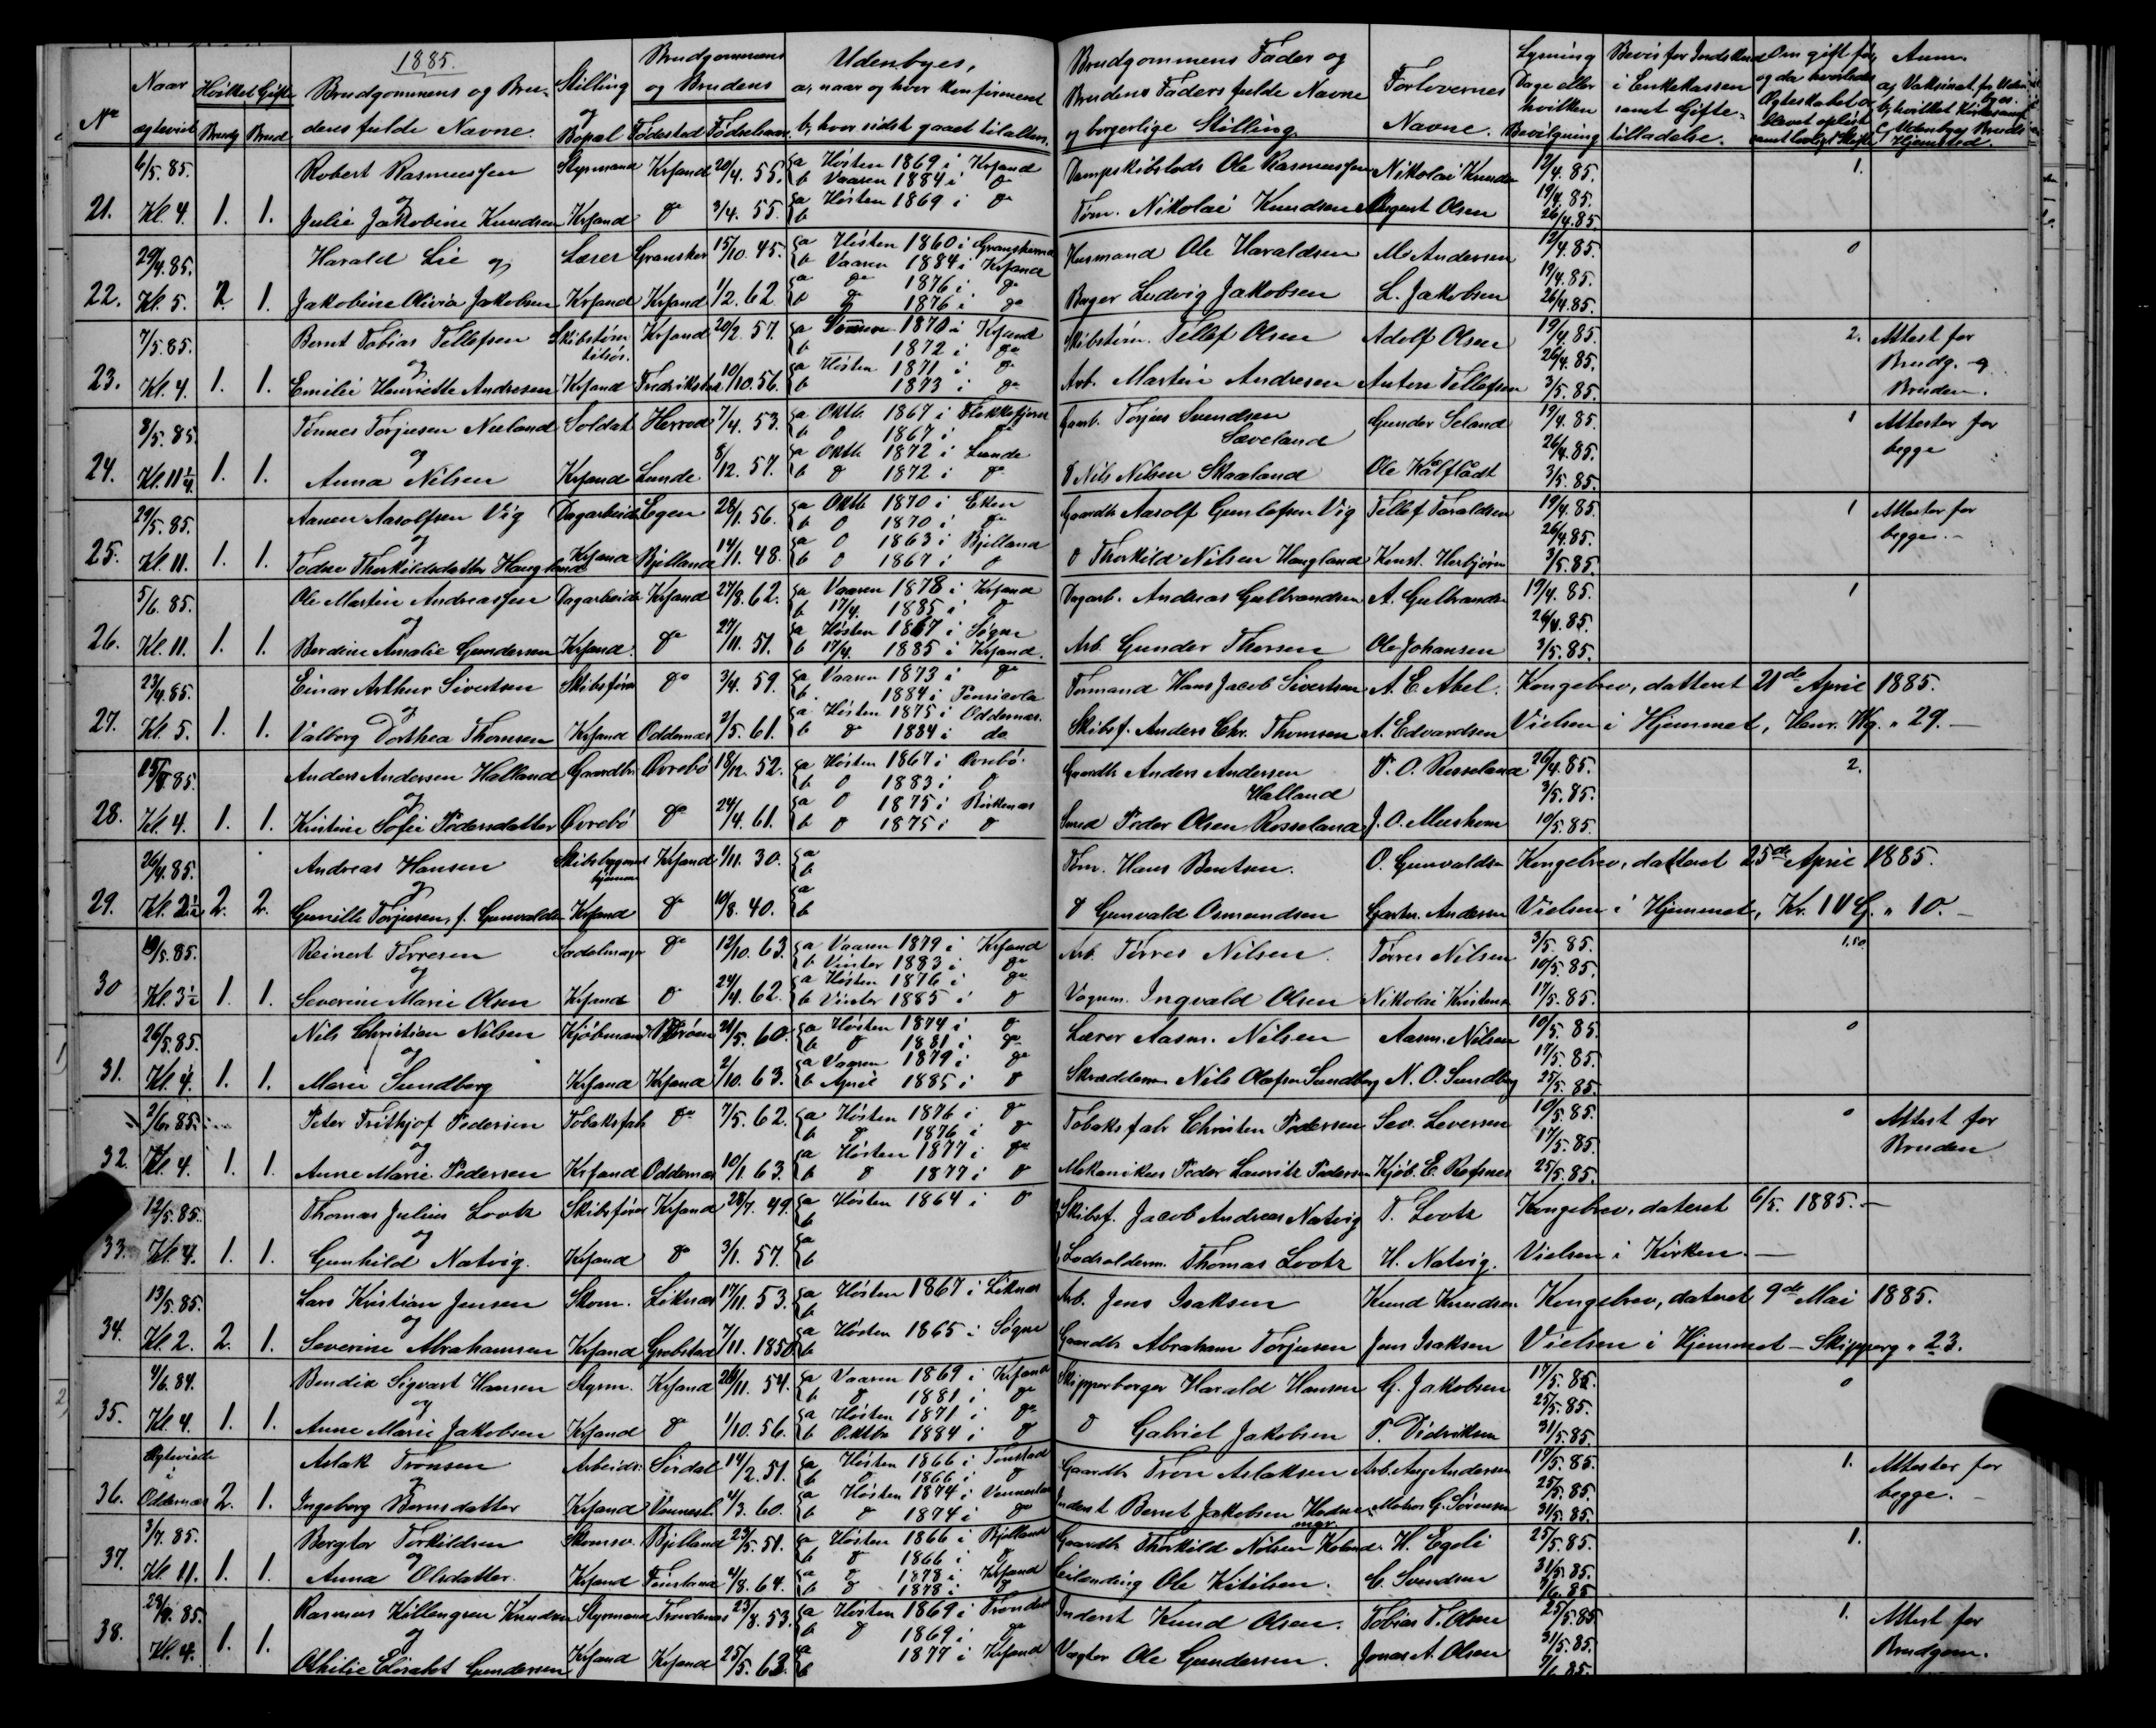 1885.
No
Naar ægteviet
Hvilket Gifte
Brudg Brud
Brudgommens og Brudens fulde Navne.
Stilling og Bopæl
Brudgommens og Brudens
Fødested Fødselsaar
Udenbyes,
a, naar og hvor konfirmeret
b, hvor sidst gaaet til alters.
Brudgommens Fader og
Brudens Faders fulde Navne
og borgerlige Stilling.
Forlovernes
Navne.
Lysning
Dage eller
hvilken
Bevilgning
Bevis for Indskud
i Enkekassen
samt Gifte-
tilladelse.
Om gift før,
og da hvorledes
Ægteskabet er
blevet opløst
samt lovligt Skifte
Anm.
21. 6/5. 85. Kl. 4. 1. 1.
Robert Rasmussen Styrmand Krsand 20/4. 55. a Høsten 1869 i Krsand b Vaaren 1884 i do
og
Julie Jakobine Knudsen Krsand do 3/4. 55. a Høsten 1869 i do b
Dampskibslods Ole Rasmussen Nikolai Knudsen 12/4. 85. 1.
19/4. 85.
Tøm. Nikolai Knudsen August Olsen 26/4. 85.
22. 29/4. 85. Kl. 5. 2 1.
Harald Lie og Lærer 15/10. 45. a Høsten 1860 i b Vaaren 1884 i Krsand
Jakobine Olivia Jakobsen Krsand Krsand 1/2. 62 a do 1876 i do b do 1876 i do
Husmand Ole Haraldsen M. Andersen 12/4. 85. 0
19/4. 85.
Bager Ludvig Jakobsen L. Jakobsen 26/4. 85.
23. 7/5. 85. Kl. 4 1. 1.
Bernt Tobias Tellefsen Krsand 20/2. 57. a Sommeren 1870 i Krsand b 1872 i do
og
Emilie Henriette Andresen Krsand Fredrikstad 10/10. 56. a Høsten 1871 i do b 1873 i do
Skibstøm. Tellef Olsen Adolf Olsen 19/4. 85. 2. Attest for
26/4. 85. Brudg. og
Arb. Martin Andresen Anton Tellefsen 3/5. 85. Bruden.
24. 8/5. 85. Kl. 11 1/4. 1. 1.
Tønnes Torjusen Næland Soldat Herred 7/4. 53. a Oktb. 1867 i Flekkefjord b do 1867 i do
og
Anna Nilsen Krsand Lunde 8/12. 57. a Oktb. 1872 i Lunde b do 1872 i do
Gaardb. Torjus Svendsen Gunder Seland 19/4. 85. 1 Attester for
Sæveland 26/4. 85. begge
do Nils Nilsen Skaaland Ole 3/5. 85.
25. 29/5. 85. Kl. 11. 1. 1.
Aanen Aasolfsen Vig Dagarbeid. Egen 28/1. 56. a Oktb. 1870 i Eken b do 1870 i do
og
Todne Thorkildsdatter Haugland Krsand Bjelland 14/1. 48. a do 1863 i Bjelland b do 1867 i do
Gaardb. Aasolf Gunlefsen Vig Tellef Taraldsen 19/4. 85. 1 Attester for
26/4. 85. begge.
do Thorkild Nilsen Haugland Konst. Herbjørn 3/5. 85.
26. 5/6. 85. Kl. 11. 1. 1.
Ole Martin Andreassen Dagarbeid. Krsand 27/8. 62. a Vaaren 1878 i Krsand b 17/4 1885 i do
og
Berdine Amalie Gundersen Krsand. do 27/11. 51. a Høsten 1867 i Søgne b 17/4 1885 i Krsand.
Dagarb. Andreas Gulbrandsen A. Gulbrandsen 19/4. 85. 1
26/4. 85.
Arb. Gunder Thorsen Ole Johansen 3/5. 85.
27. 23/4. 85. Kl. 5. 1. 1.
Einar Arthur Sivertsen Skibsfører do 3/4. 59. a Vaaren 1873 i do b 1884 i Pensacola
og
Valborg Dorthea Thomsen Krsand Oddernæs 2/5. 61. a Høsten 1875 i Oddernæs. b do 1884 i do
Formand Hans Jacob Sivertsen A. E. Abel. Kongebrev, datteret 21de April 1885.
Skibsf. Anders Chr. Thomsen A. Edvardsen Vielsen i Hjemmet, Henr. Wg. " 29.
28. 15/5 85. Kl. 4. 1. 1.
Anders Andersen Halland Gaardbr. Øvrebø 18/12. 52. a Høsten 1867 i Øvrebø. b do 1883 i do
og
Kristine Sofie Pedersdatter Øvrebø do 24/4. 61. a do 1875 i Birkenæs b do 1875 i do
Gaardb. Anders Andersen P. O. Rosseland 26/4. 85. 2.
Halland 3/5. 85.
Smed Peder Olsen Rosseland J. O. Mushom 10/5. 85.
29. 26/4. 85. Kl. 2 1/2 2. 2.
Andreas Hansen Krsand 1/11. 30. a b
og
Gunille Torjusen, f. Gunvaldsen Krsand do 19/8. 40. a b
Tøm. Hans Bentsen. O. Gunvaldsen Kongebrev, datteret 25de April 1885.
do Gunvald Osmundsen Andersen Vielsen i Hjemmet, Kr. IV G. " 10.
30 19/5. 85. Kl. 3 1/2 1. 1.
Reinert Tørresen Sadelmager do 12/10. 63. a Vaaren 1879 i Krsand b Vinter 1883 i do
og
Severine Marie Olsen Krsand do 24/4. 62. a Høsten 1876 i do b Vinter 1885 i do
Arb. Tørres Nilsen. Tørres Nilsen 3/5. 85. 1,50
10/5. 85.
Vognm. Ingvald Olsen Nikolai Kristensen 17/5. 85.
31. 26/5. 85. Kl. 4. 1. 1.
Nils Christian Nilsen Kjøbmand 21/5. 60. a Høsten 1874 i do b do 1881 i do
og
Marie Sundberg Krsand Krsand 2/10. 63. a Vaaren 1879 i do b April 1885 i do
Lærer Aasm. Nilsen Aasm. Nilsen 10/5. 85. 0
17/5. 85.
Skræddem. Nils Olafsen Sundberg N. O. Sundberg 25/5. 85.
32. 2/6. 85. Kl. 4. 1. 1.
Peter Frithjof Pedersen Tobaksfab. do 7/5. 62. a Høsten 1876 i do b do 1876 i do
og
Anne Marie Pedersen Krsand Oddernæs 10/1. 63. a Høsten 1877 i do b do 1877 i do
Tobaksfabr. Christen Pedersen Sev. Seversen 10/5. 85. 0 Attest for
17/5. 85. Bruden
Mekanikus Peder Lauritz Pedersen Kjøb. E. Refsnes 25/5. 85.
33. 12/5. 85. Kl. 4. 1. 1.
Thomas Julius Lootz Skibsfører Krsand 28/7. 49. a Høsten 1864 i do b
og
Gunhild Natvig. Krsand do 3/1. 57. a b
Skibsf. Jacob Andreas Natvig T. Lootz Kongebrev, dateret 6/5. 1885.
Lodsolderm. Thomas Lootz H. Natvig. Vielsen i Kirken.
34. 13/5. 85. Kl. 2. 2. 1.
Lars Kristian Jensen Skom. Liknæs 17/11. 53. a Høsten 1867 i Liknæs b
og
Severine Abrahamsen Krsand Grebstad 7/11. 1850 a Høsten 1865 i Søgne b
Arb. Jens Isaksen Knud Knudsen Kongebrev, dateret 9de Mai 1885.
Gaardb. Abraham Torjusen Jens Isaksen Vielsen i Hjemmet - Skipperg. " 23.
35. 4/6. 84. Kl. 4. 1. 1.
Bendix Sigvart Hansen Styrm. Krsand 26/11. 54. a Vaaren 1869 i Krsand b do 1881 i do
og
Anne Marie Jakobsen Krsand do 1/10. 56. a Høsten 1871 i do b Oktbr. 1884 i do
Skipperborger Harald Hansen G. Jakobsen 17/5. 85. 0
25/5. 85.
do Gabriel Jakobsen P. Didriksen 31/5. 85.
36. Ægteviede i Oddernæs 2. 1.
Aslak Tronsen Arbeids. Sirdal 14/2. 51. a Høsten 1866 i Tonstad b do 1866 i do
og
Ingeborg Berntsdatter Krsand Vennesl. 4/3. 60. a Høsten 1874 i Vennesland b do 1874 i do
Gaardb. Tron Aslaksen Arb. Aug. Andersen 17/5. 85. 1. Attester for
25/5. 85. begge.
Inderst Bernt Jakobsen G. Sørensen 31/5. 85.
37. 3/7. 85. Kl. 11. 1. 1.
Bergtor Torkildsen Skomsv. Bjelland 23/5. 51. a Høsten 1866 i Bjelland b do 1866 i do
og
Anna Olsdatter. Krsand Finsland 4/8. 64. a do 1878 i Krsand b do 1878 i do
Gaardb. Thorkild Nilsen H. Egeli 25/5. 85. 1.
31/5. 85.
Leilænding Ole Kitilsen. C. Svendsen 7/6. 85
38. 85. Kl. 4. 1. 1.
Rasmus Killengren Knudsen Styrmand Tromdenæs 23/8. 53. a Høsten 1869 i b do 1869 i do
og
Othilie Elisabet Gundersen Krsand Krsand 25/5. 63. a 1877 i Krsand b
Inderst Knud Olsen. Tobias T. Olsen 25/5. 85 1. Attest for
31/5. 85. Brudgom.
Vægter Ole Gundersen. Jonas A. Olsen 7/6. 85.